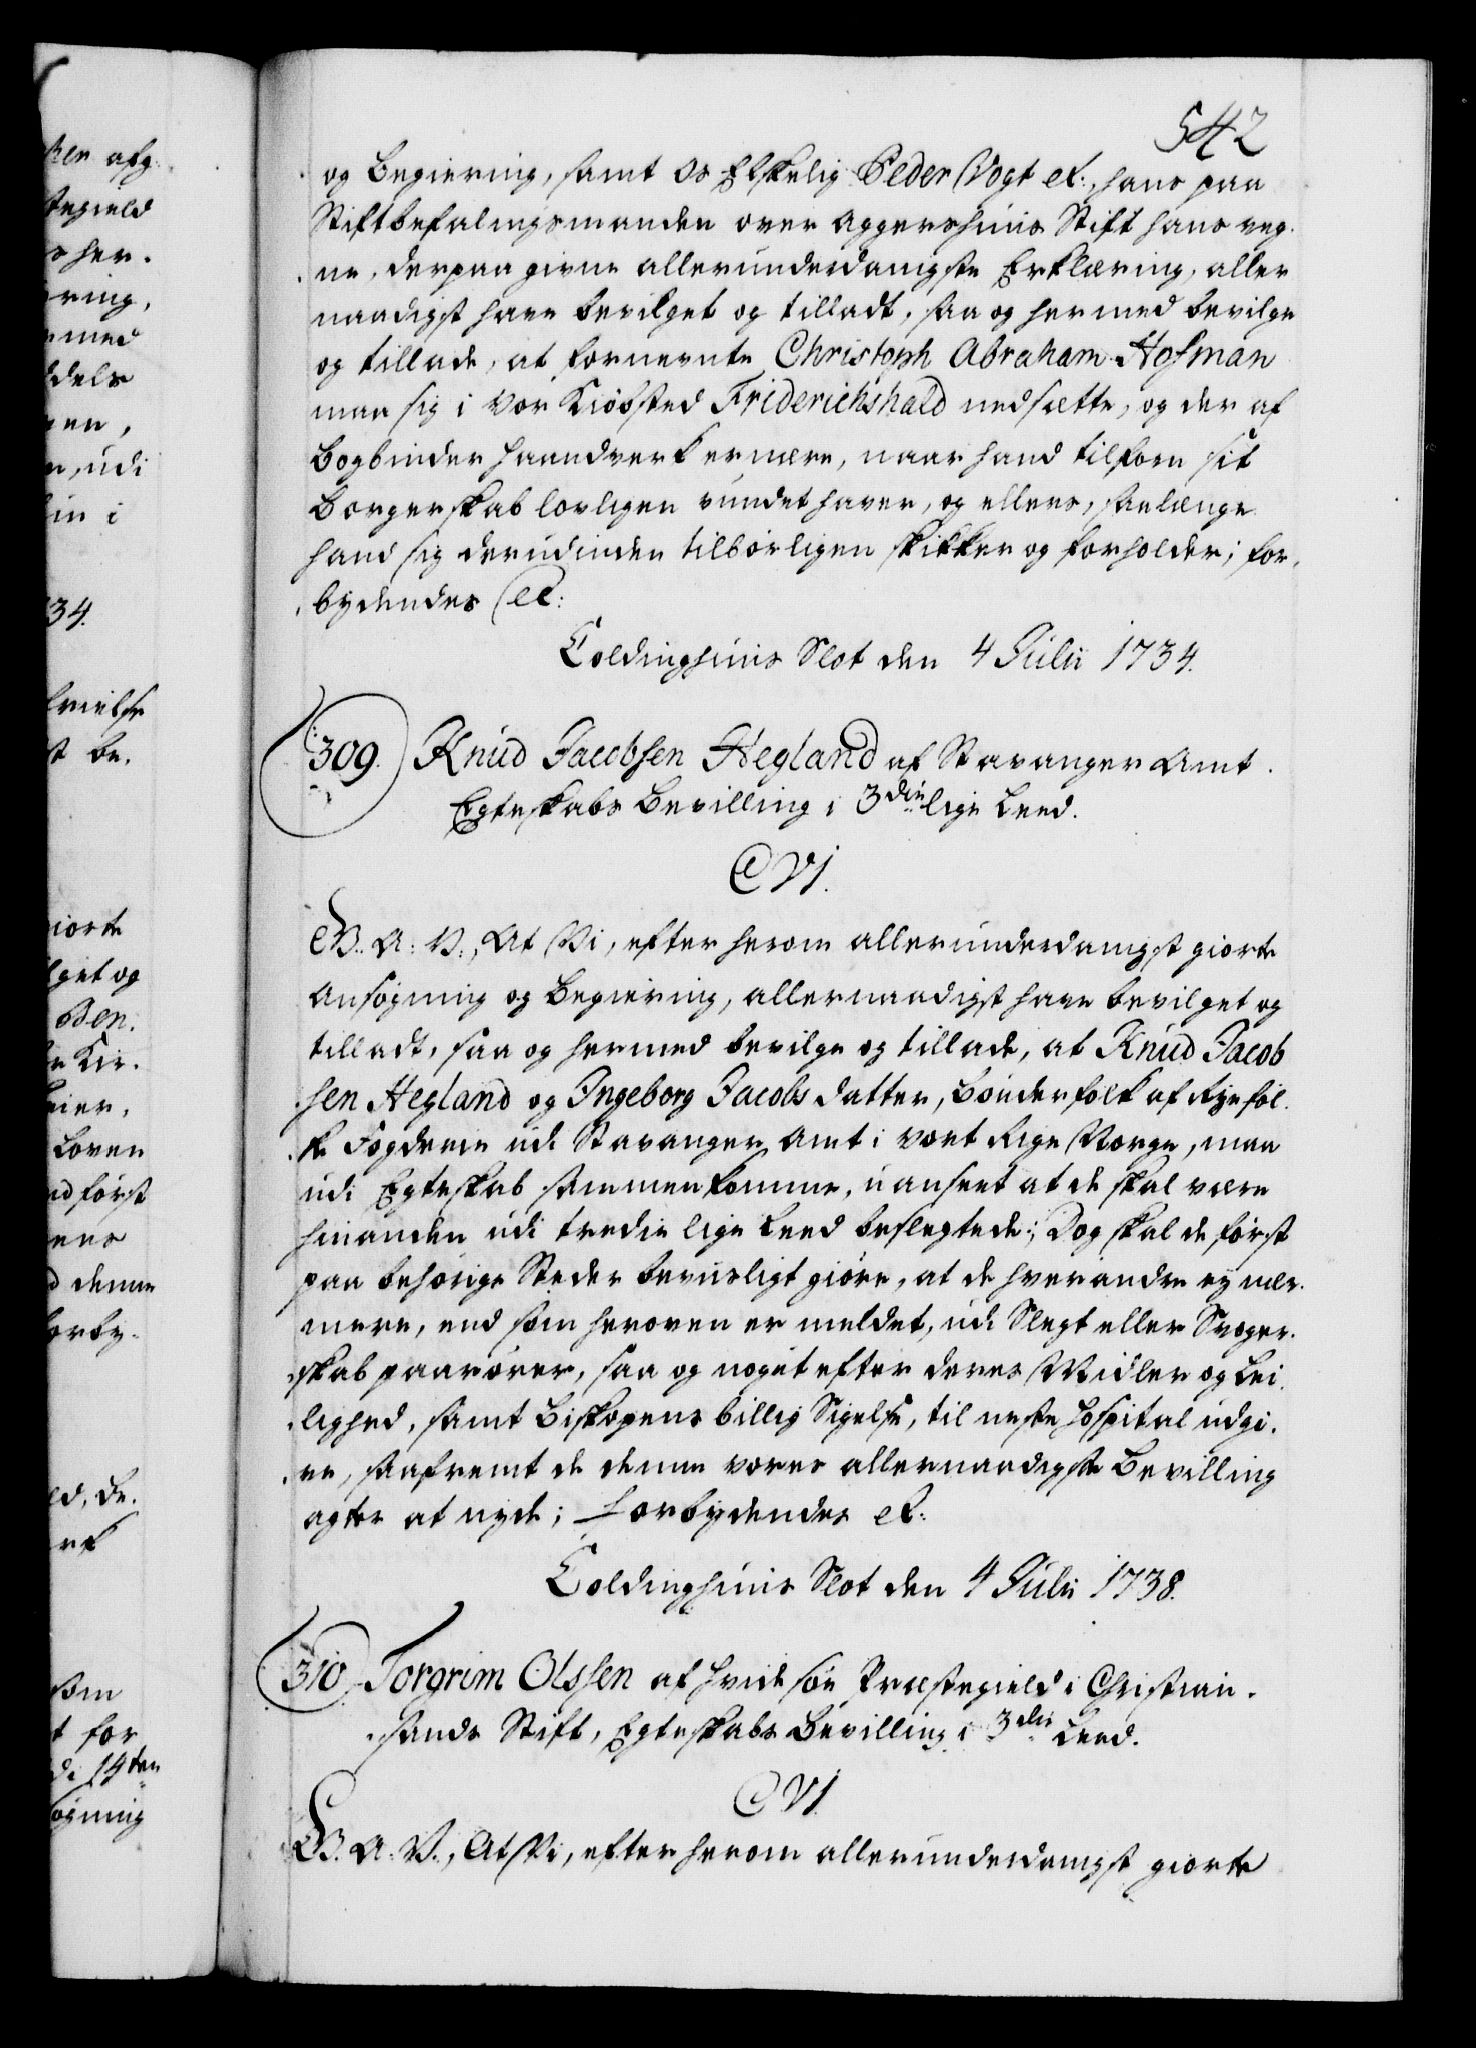 542
og begiering, samt Os Elskelig Peder Vogt etc:, hans paa
Stiftbefalingsmanden over Aggershuus Stift hans veg-
ne, derpaa givne allerunderdanigste Erklæring, aller
naadigst have bevilget og tilladt, saa og hermed bevilge
og tillade, at fornevnte Christoph Abraham Hofman
maa sig i vor Kiøbsted Friderichshald nedsætte, og der af
Bogbinder Haandverk ernære, naar hand tilforn sit
Borgerskab lovligen vundet haver, og ellers, saalænge
hand sig derudinden tilbørligen skikker og forholder; for-
bydendes etc:
Coldinghuus Slot den 4 Julii 1734.
309. Knud Jacobsen Hegland af Stavanger Amt.
Egteskabs Bevilling i 3die lige Leed.
C VI.
G. A: V:, At Vi, efter herom allerunderdanigst giorte
Ansøgning og Begiering, allernaadigst have bevilget og
tilladt, saa og hermed bevilge og tillade, at Knud Jacob
sen Hegland og Ingeborg Jacobs datter, Bønderfolk af Ryeføl-
ke Fogderie udi Stavanger Amt i vort Rige Norge, maa
udi Egteskab sammenkomme, uanseet at de skal være
hinanden udi tredie lige Leed beslegtede; Dog skal de først
paa behørige Steder beviisligt giøre, at de hverandre ey nær-
mere, end som heroven er meldet, udi Slegt eller Svoger-
skab paarører, saa og noget efter deres Midler og Lei-
lighed, samt Biskopens billig Sigelse, til neste Hospital udgi-
ve, saafremt de denne vores allernaadigste Bevilling
agter at nyde; Forbydendes etc:
Coldinghuus Slot den 4 Julii 1738.
310 Torgrim Olssen af Hvidesøe Præstegield i Christian-
sands Stift, Egteskabs Bevilling i 3die Leed.
C VI
G. A. V., At Vi, efter herom allerunderdanigst giorte